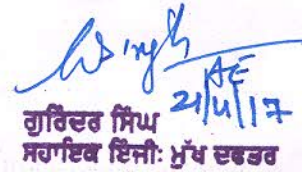 AE
21/4/17
ਗੁਰਿੰਦਰ ਸਿੰਘ
ਸਹਾਇਕ ਇੰਜੀ: ਮੁੱਖ ਦਫਤਰ